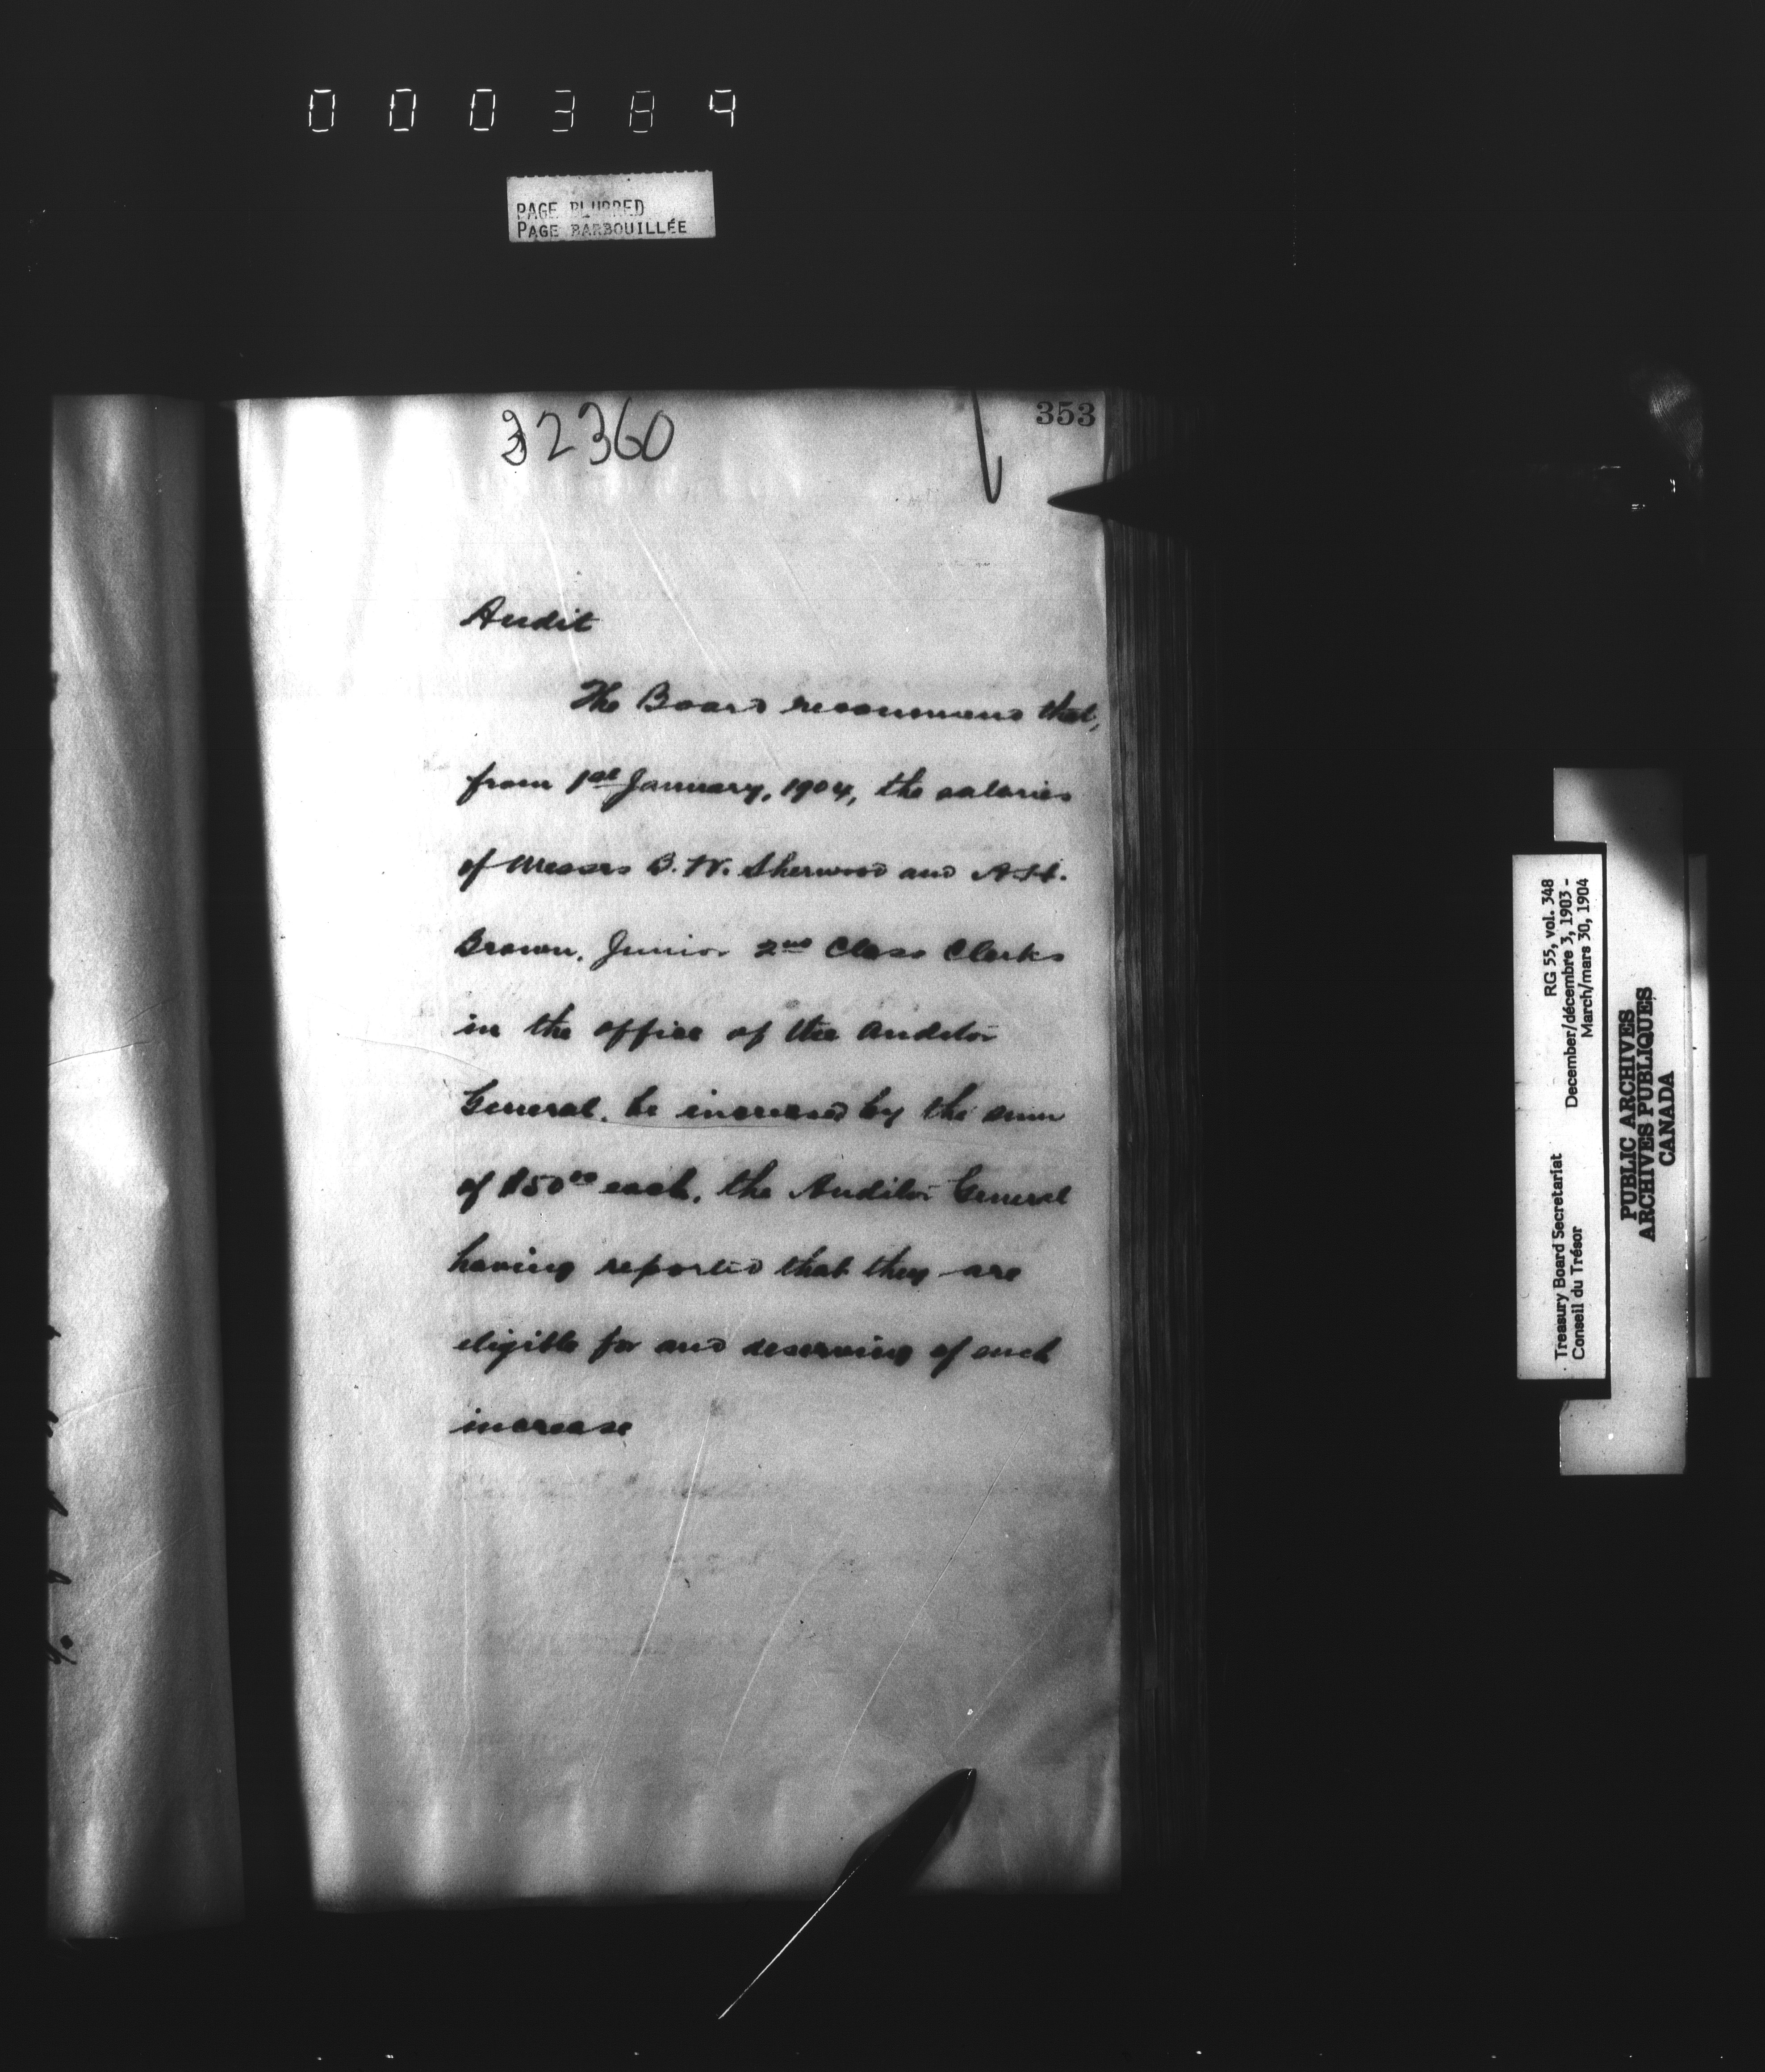 000389
PAGE BLURRED
PAGE BARBOUILLÉE
32360
353
Audit
The Board recommend that,
from 1st January, 1904, the salaries
of Messrs B. W. Sherwood and A. H.
Brown, Junior 2nd Class Clerks
in the office of the Auditor
General, be increased by the sum
of $50 00 each, the Auditor General
having reported that they are
eligible for and deserving of such
increase
Treasury Board Secretariat RG 55, vol. 348
Conseil du Trésor December/décembre 3, 1903 -
March/mars 30, 1904
PUBLIC ARCHIVES
ARCHIVES PUBLIQUES
CANADA